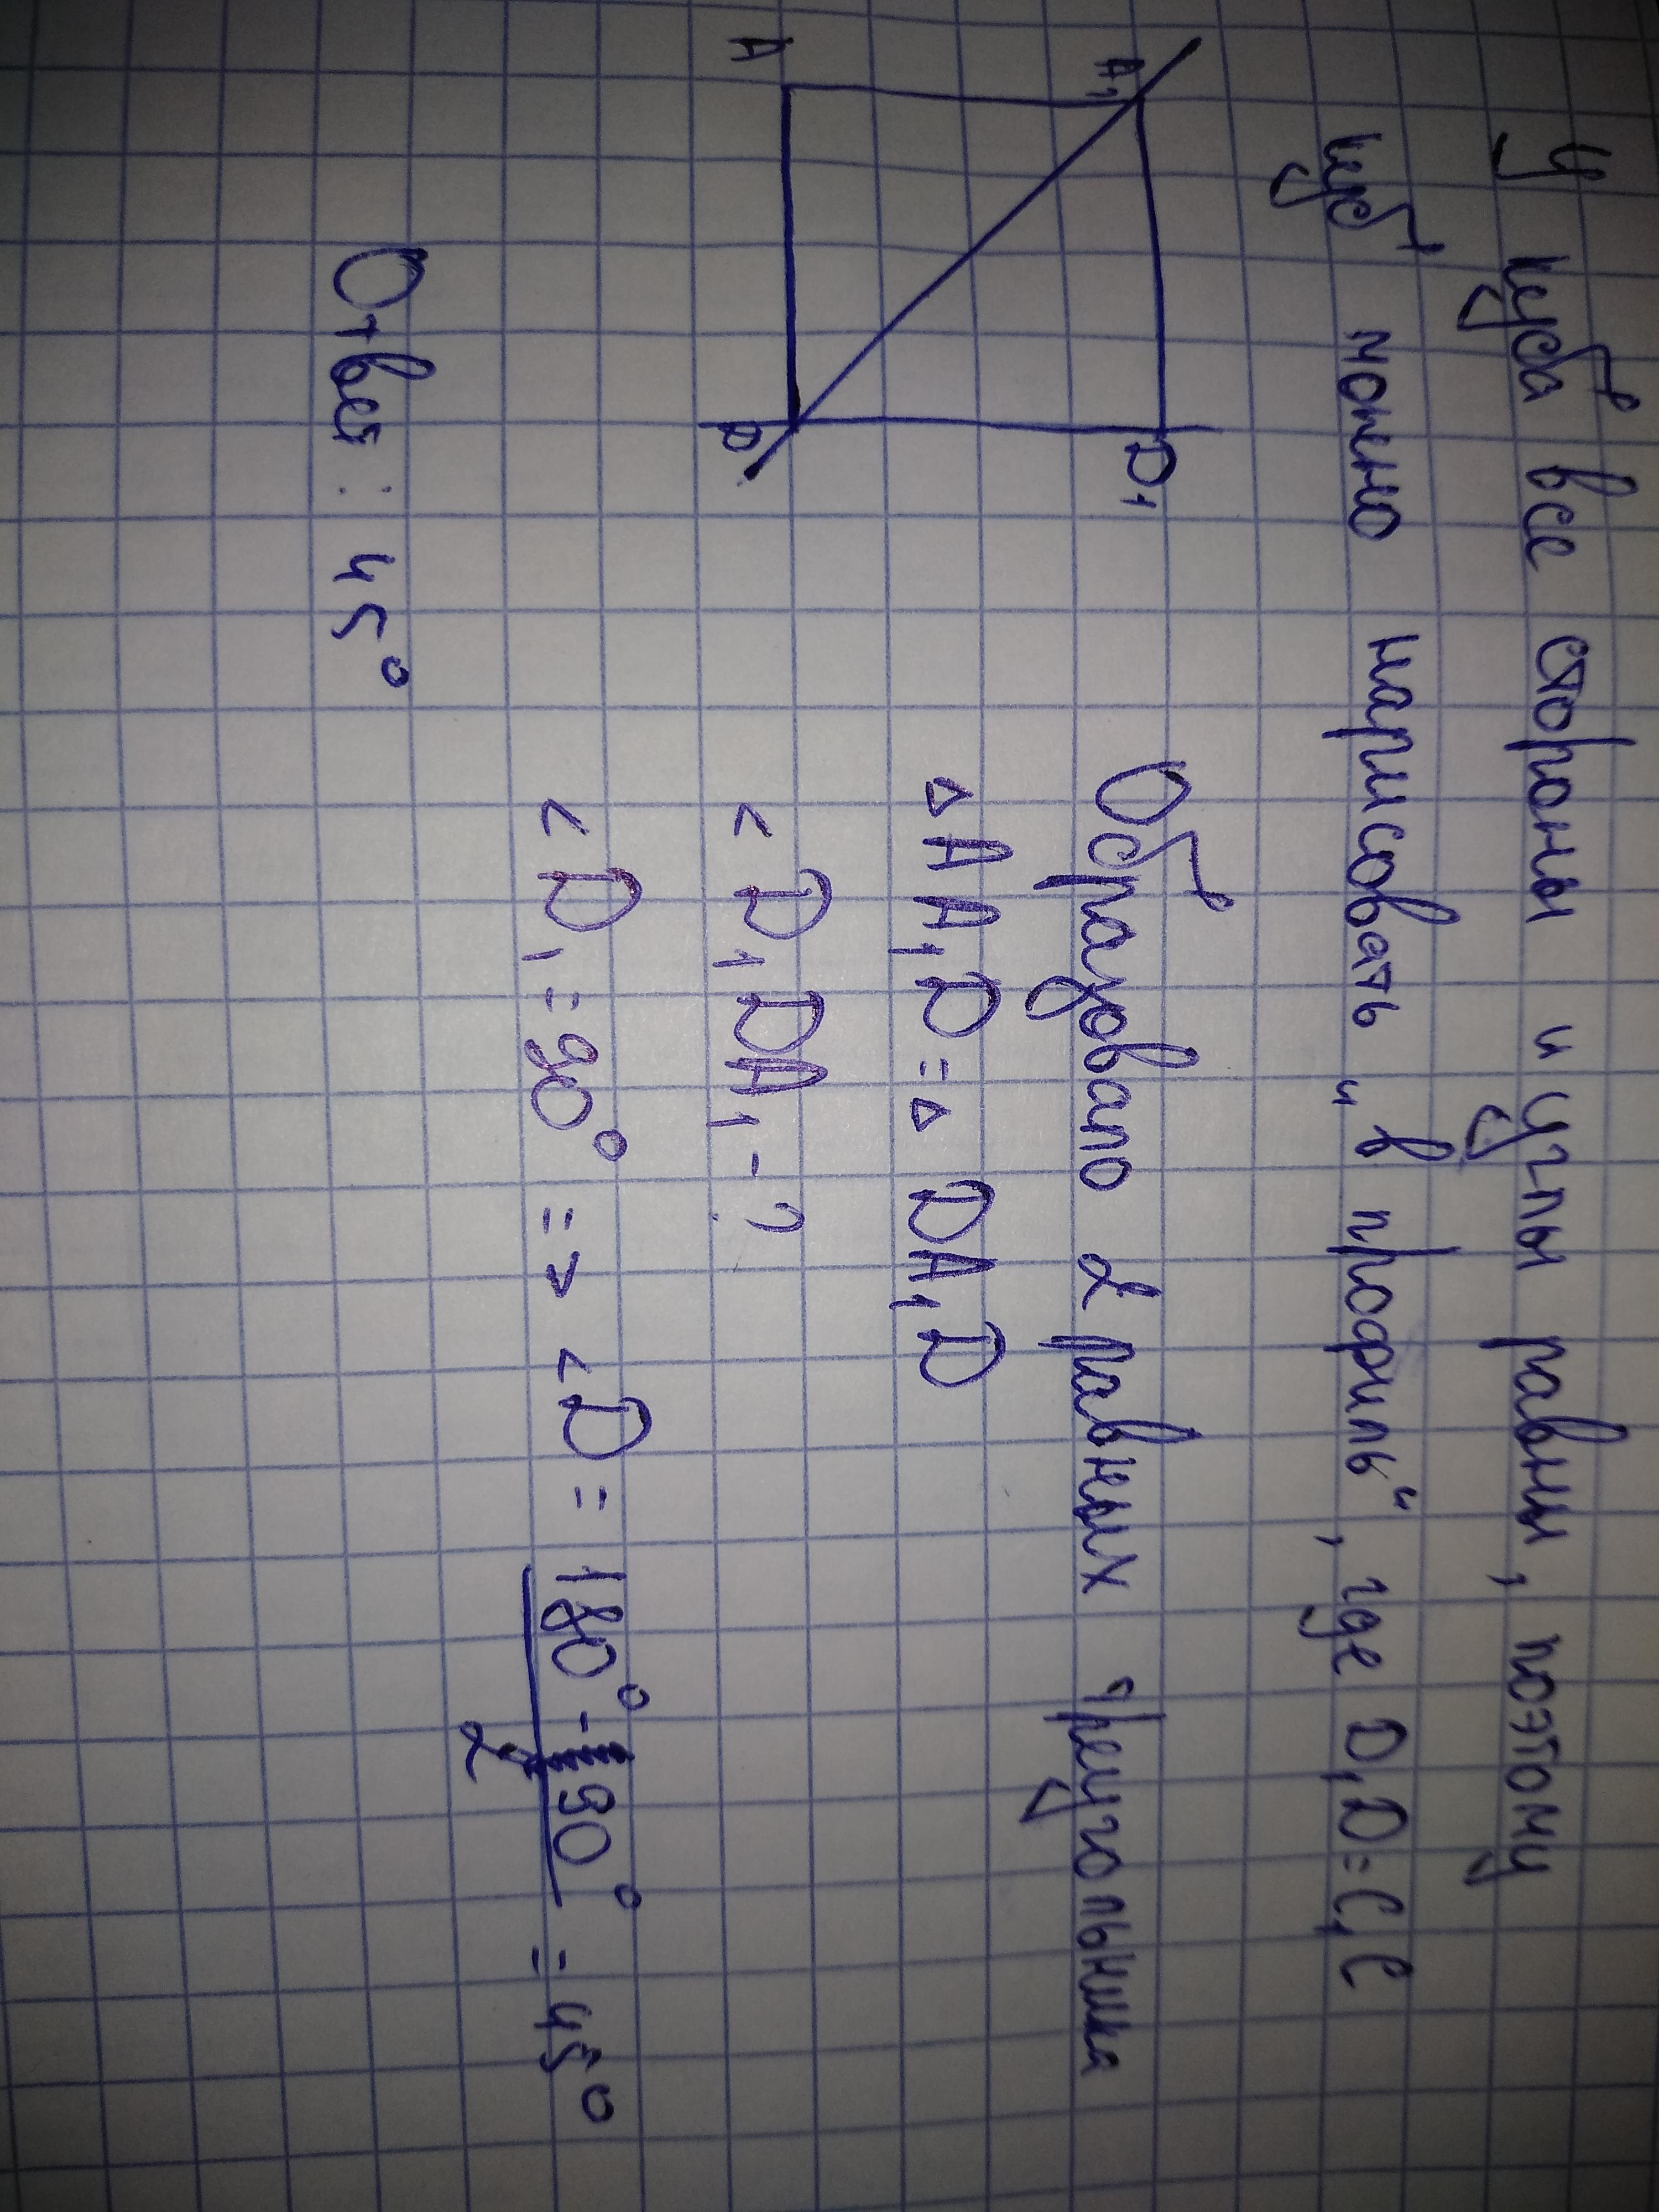 У куба все стороны и углы равны, поэтому
куб можно нарисовать „в профиль“, где D₁D=C₁C
A₁
D₁
A
D
Образовало 2 равных треугольника
△AA₁D=△DA₁D
<D₁DA₁-?
<D₁=90° => <D = 180°-90° = 45°
2
Ответ: 45°